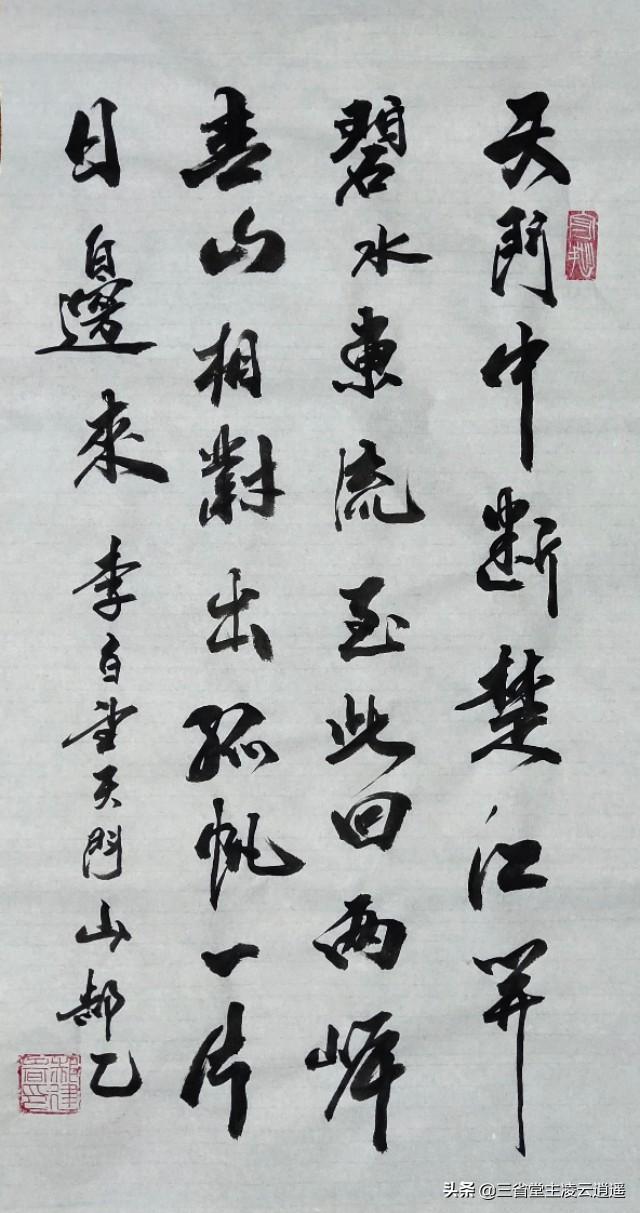 天門中断楚江开
碧水東流至此回两岸
青山相對出孤帆一片
日邊來 李白望天門山 郝乙
头条 @三省堂主凌云逍遥